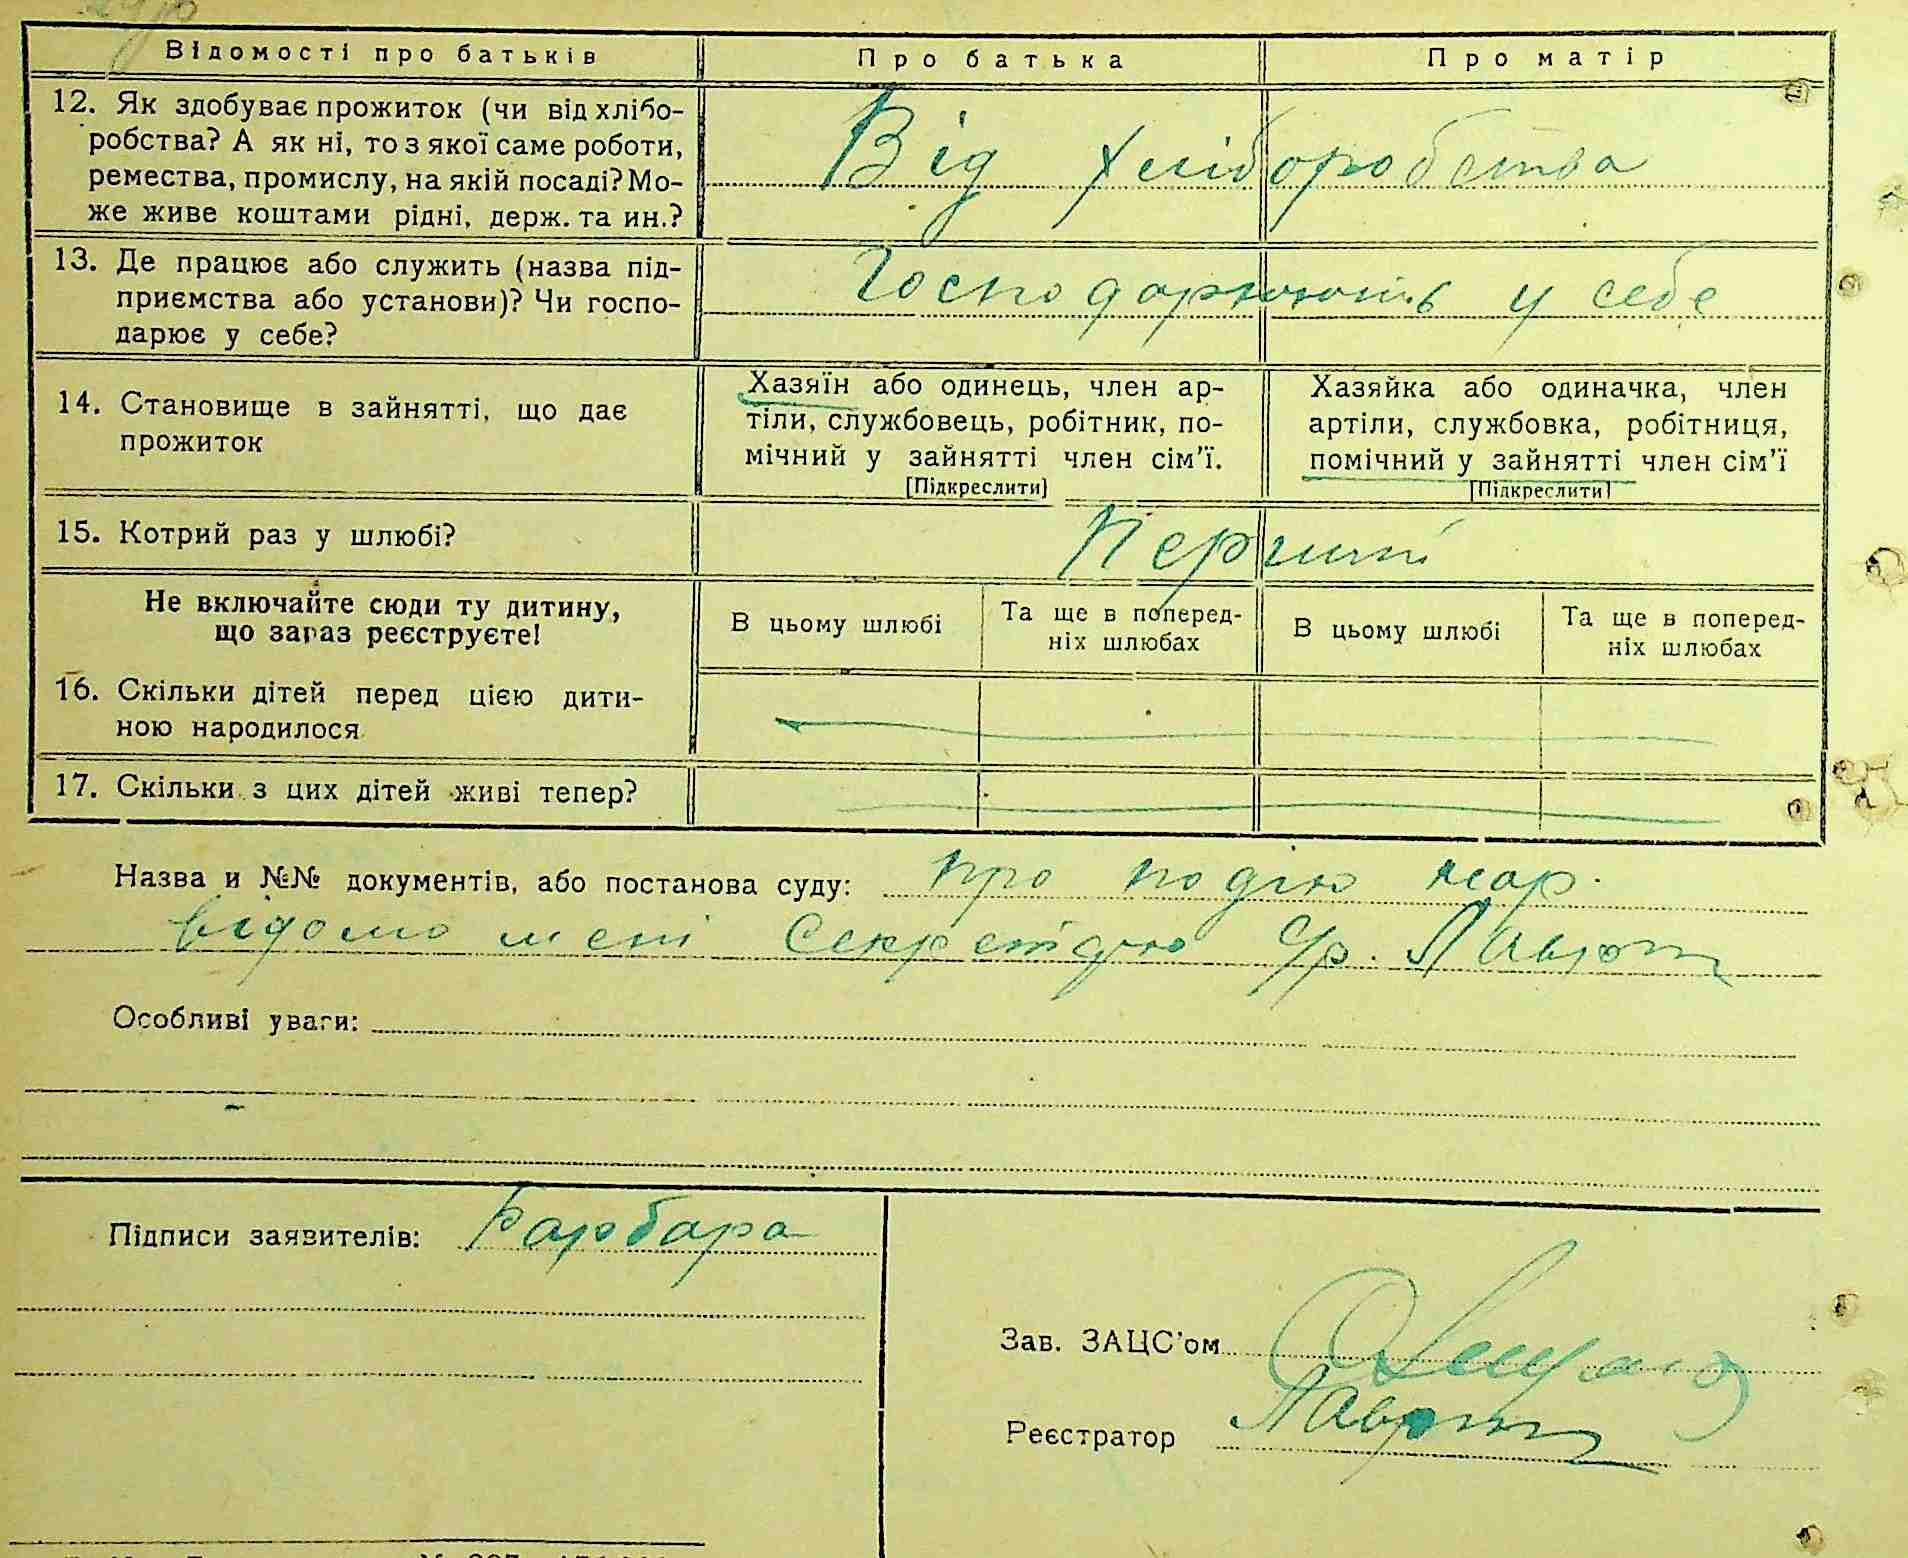 Відомості про батьків Про батька Про матір
12. Як здобуває прожиток (чи від хлібо-
робства? А як ні, то з якої саме роботи,
ремества, промислу, на якій посаді? Мо-
же живе коштами рідні, держ. та ин.?
Від хліборобства
13. Де працює або служить (назва під-
приємства або установи)? Чи госпо-
дарює у себе?
Господарюють у себе
14. Становище в зайнятті, що дає
прожиток
Хазяїн або одинець, член ар-
тіли, службовець, робітник, по-
мічний у зайнятті член сім'ї.
[Підкреслити]
Хазяйка або одиначка, член
артіли, службовка, робітниця,
помічний у зайнятті член сім'ї
[Підкреслити]
15. Котрий раз у шлюбі? Перший
Не включайте сюди ту дитину,
що зараз реєструєте!
В цьому шлюбі
Та ще в поперед-
ніх шлюбах
В цьому шлюбі
Та ще в поперед-
ніх шлюбах
16. Скільки дітей перед цією дити-
ною народилося
17. Скільки з цих дітей живі тепер?
Назва и №№ документів, або постанова суду: про подію нар.
відомо мені
Особливі уваги:
Підписи заявителів: Барбара
Зав. ЗАЦС'ом
Реєстратор